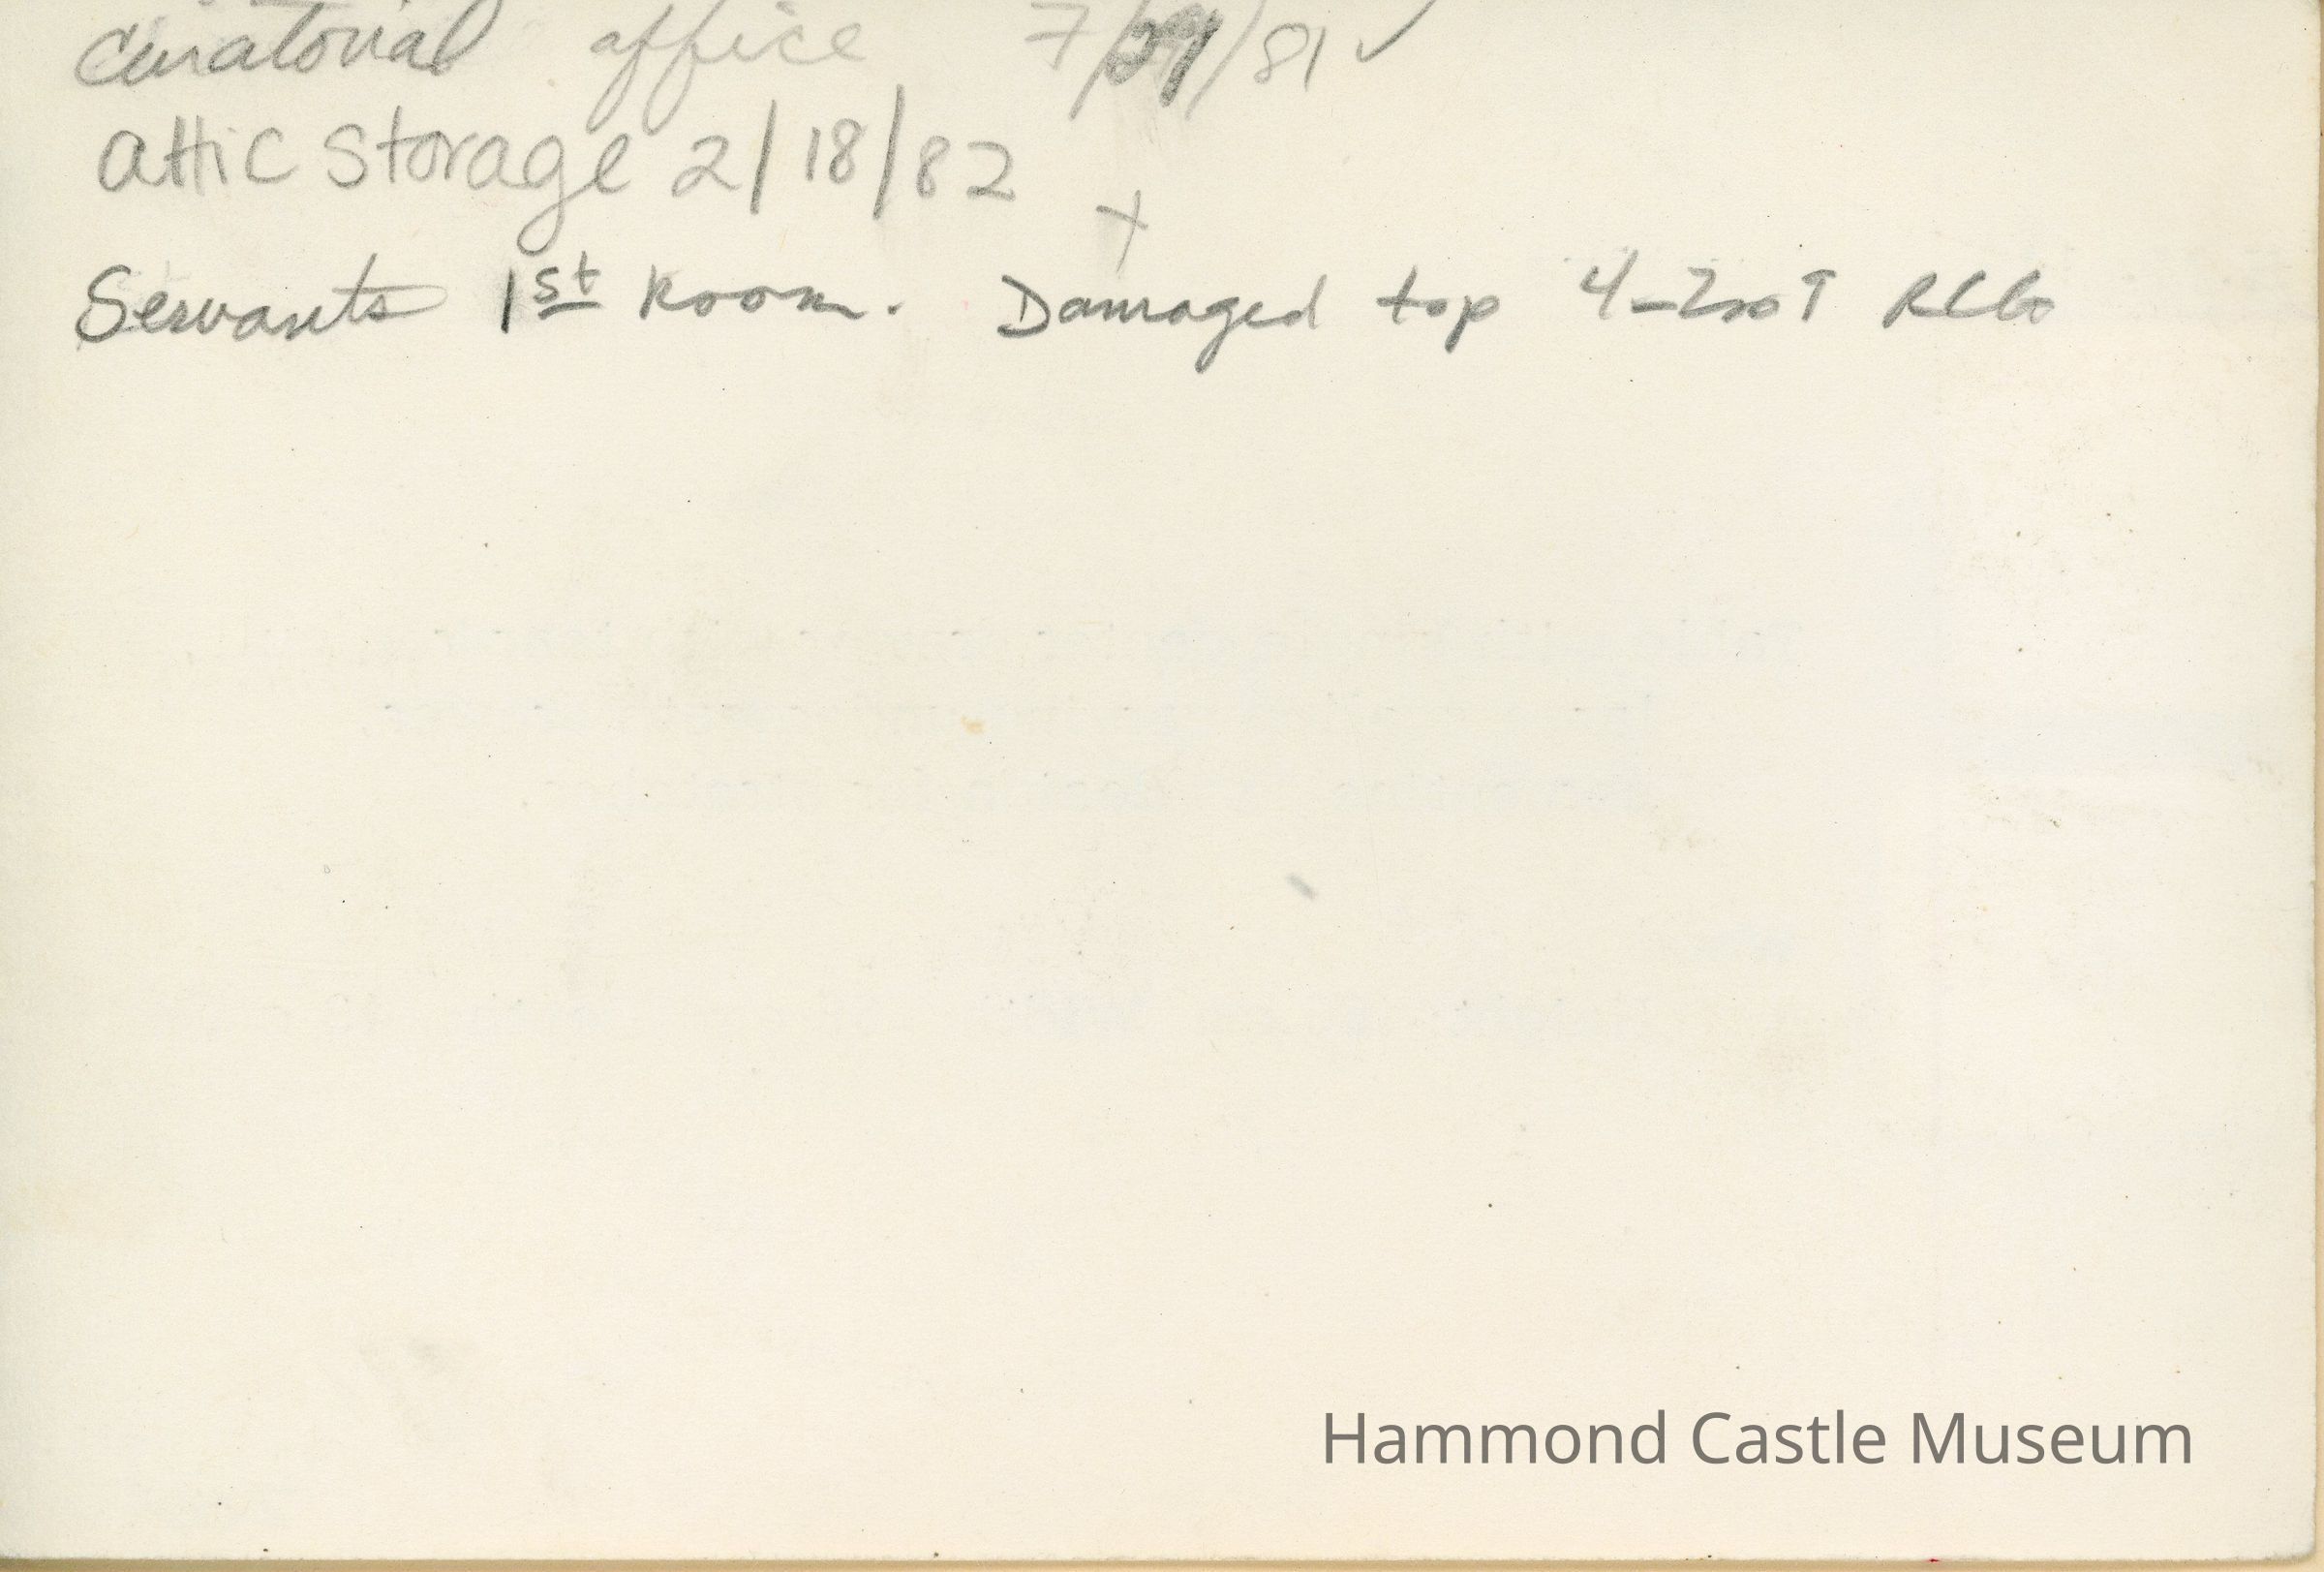 Curatorial office 7/29/81 ✓
attic storage 2/18/82
Servants 1st Room. Damaged top
Hammond Castle Museum